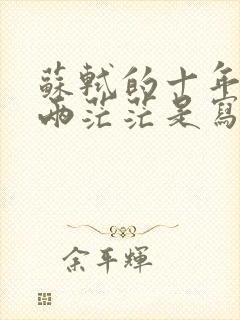 蘇軾的十年
兩茫茫是寫
余平輝